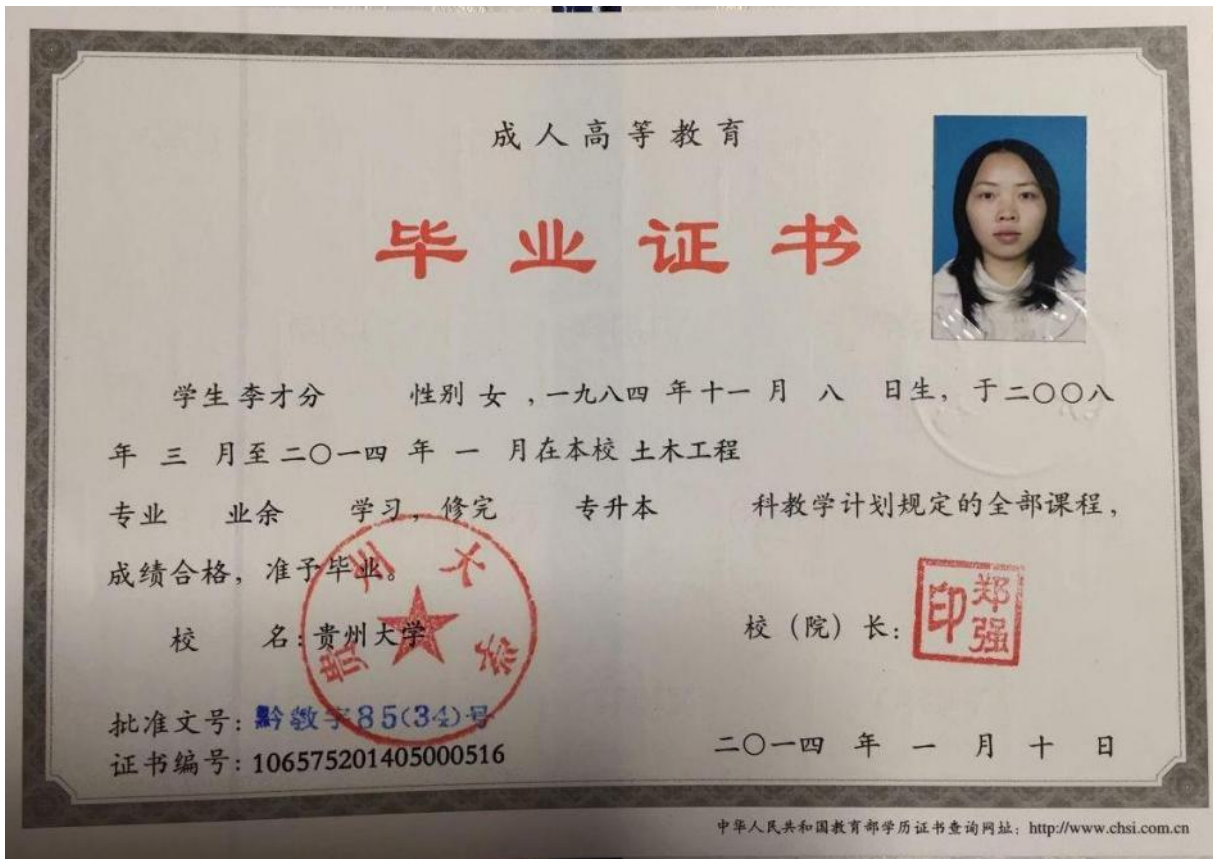 成人高等教育
毕业证书
学生 李才分 性别 女 ,一九八四 年 十一 月 八 日生, 于二〇〇八
年 三 月至二〇一四 年 一 月在本校 土木工程
专业 业余 学习, 修完 专升本 科教学计划规定的全部课程,
成绩合格, 准予毕业。
贵州大学
校 名: 贵州大学
校 (院) 长:
郑强印
批准文号: 黔教字85(34)号
证书编号: 106575201405000516
二〇一四 年 一 月 十 日
中华人民共和国教育部学历证书查询网址: http://www.chsi.com.cn